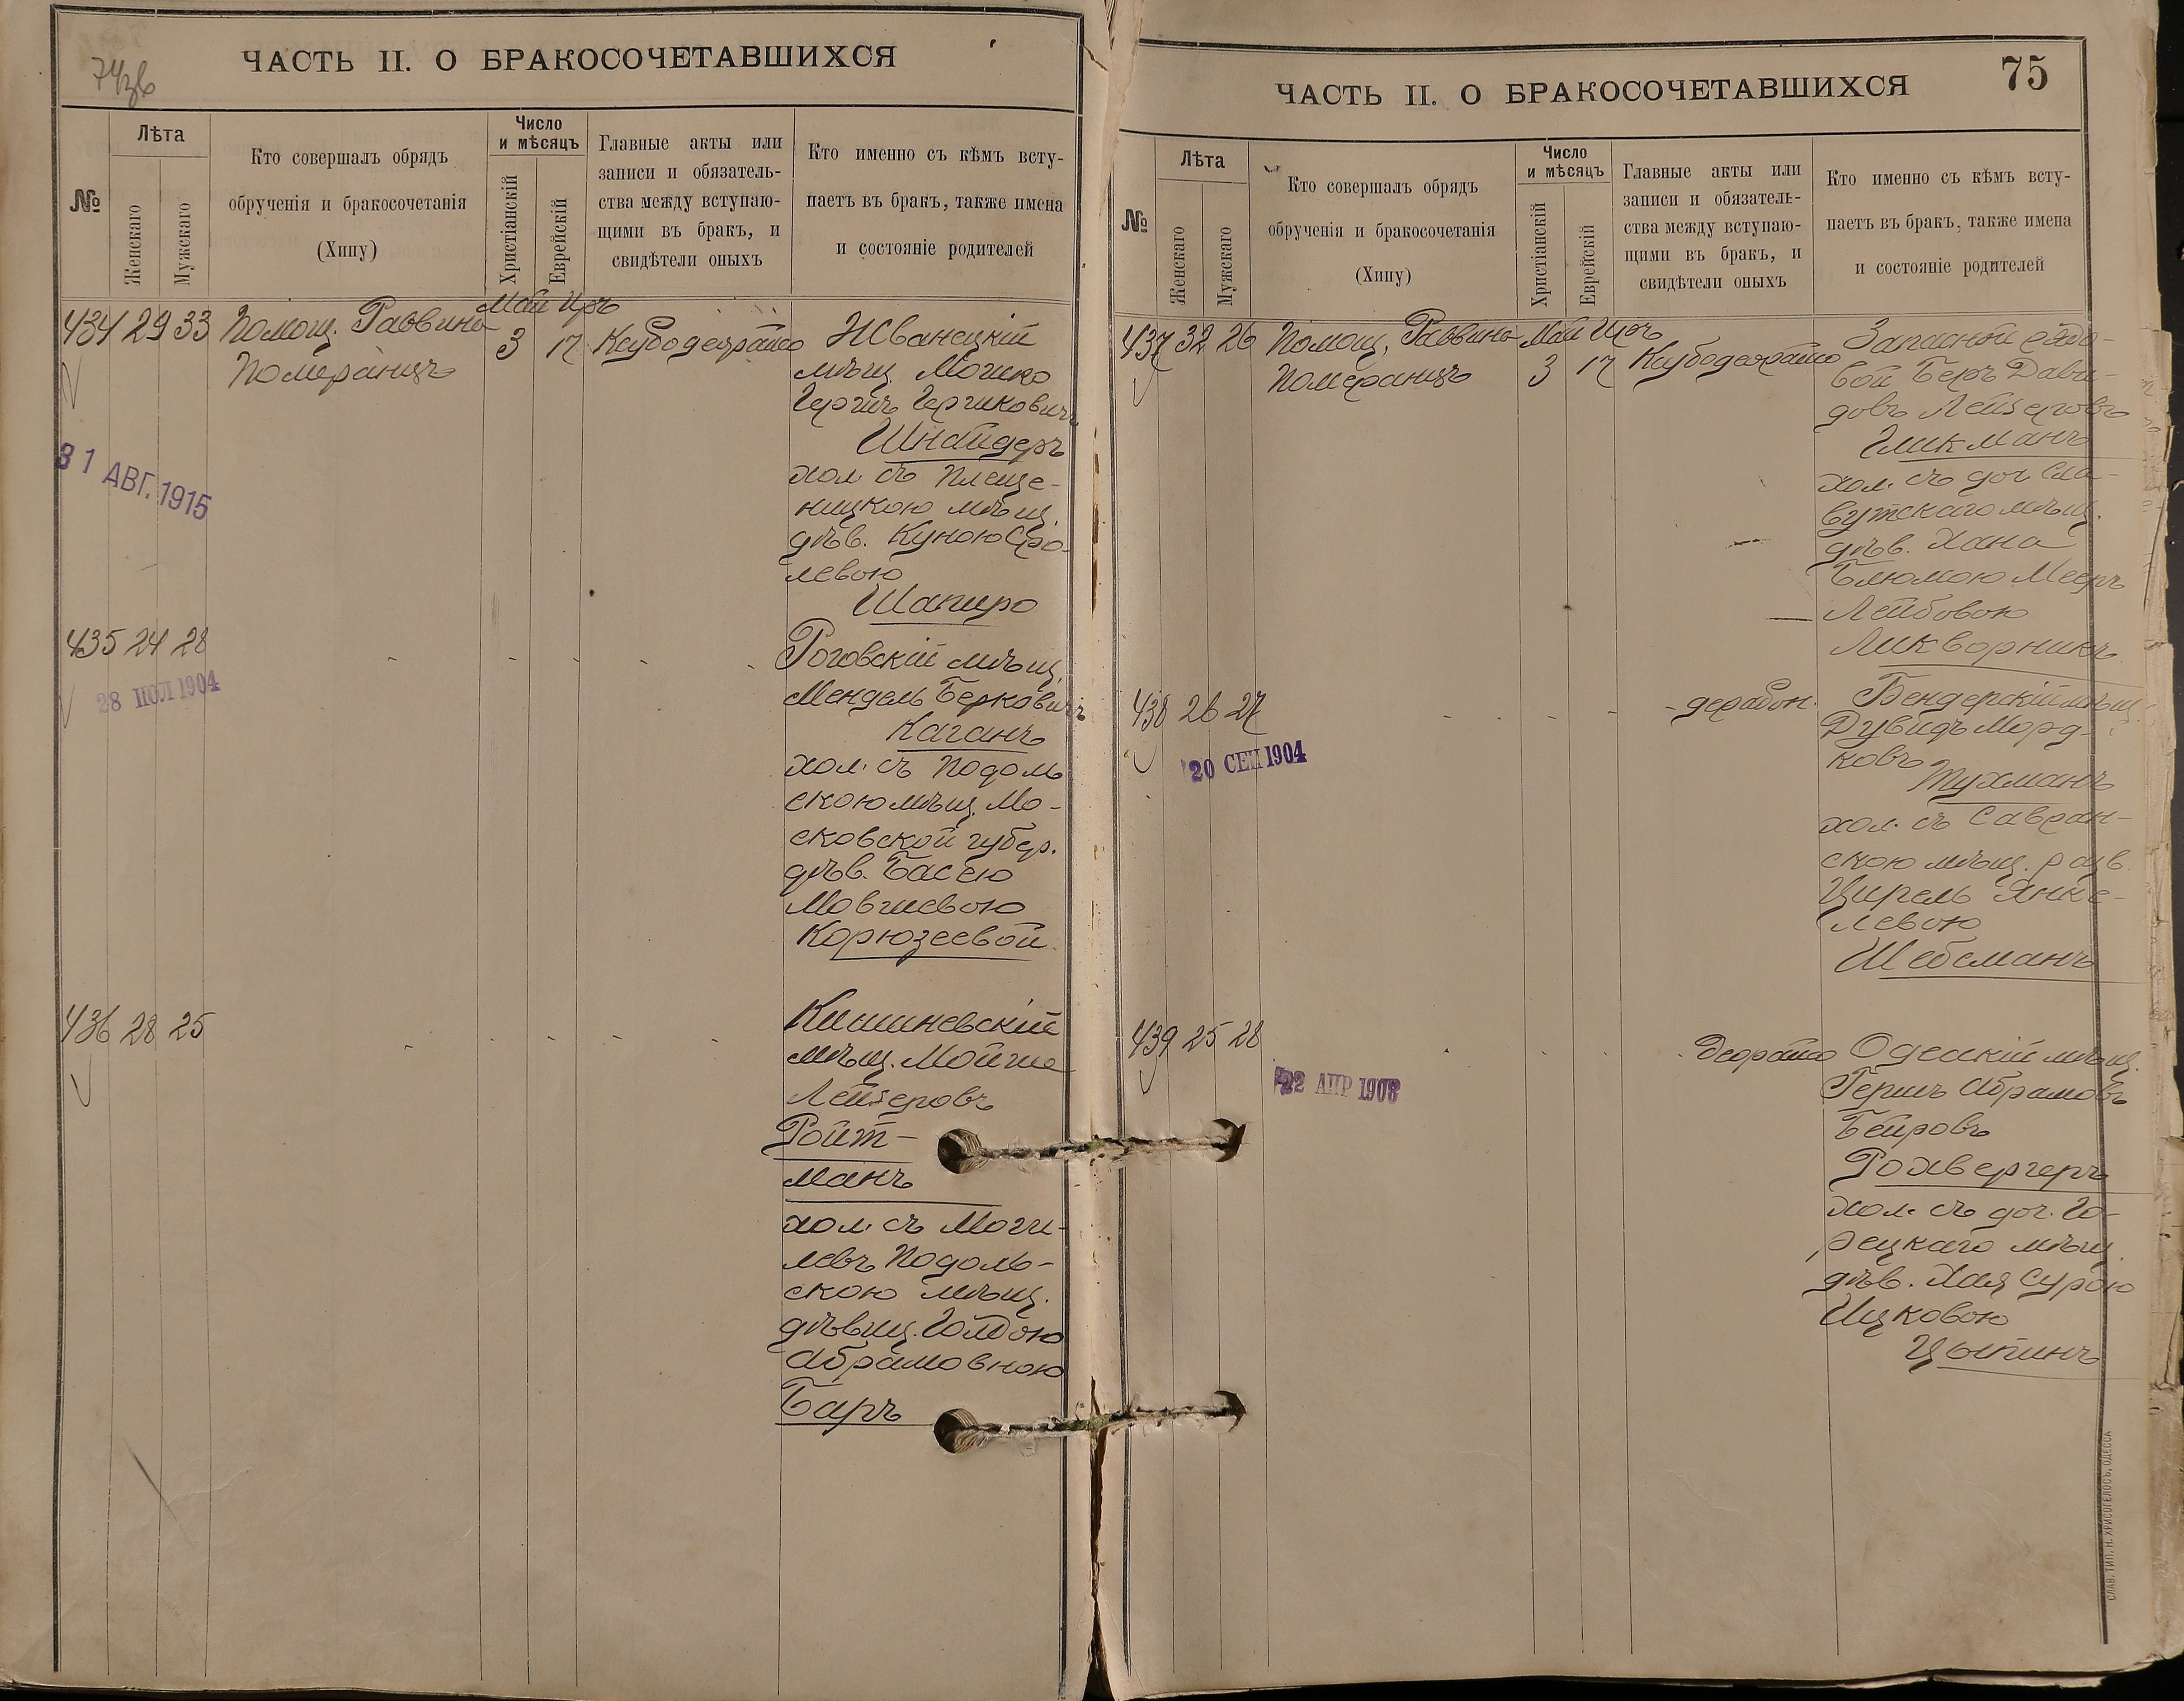 74зв
ЧАСТЬ II. О БРАКОСОЧЕТАВШИХСЯ
№
Лѣта
Женскаго
Мужскаго
Кто совершалъ обрядъ
обрученія и бракосочетанія
(Хипу)
Число
и мѣсяцъ
Христіанскій
Еврейскій
Главные акты или
записи и обязатель-
ства между вступаю-
щими въ бракъ, и
свидѣтели оныхъ
Кто именно съ кѣмъ всту-
паетъ въ бракъ, также имена
и состояніе родителей
434 29 33 Помощ. Раввина
Померанцъ
Май Иръ
3 17
Жванецкій
мѣщ. Мошко
Гершъ Гершковичъ
Шнайдеръ
хол. съ Плеще-
ницкою мѣщ.
дѣв. Куною Сро-
левою
Шапиро
31 АВГ. 1915
435 24 28
28 ІЮЛ 1904
Роговскій мѣщ.
Мендель Берковичъ
Каганъ
хол. съ Подоль
скою мѣщ. Мо-
сковской губер.
дѣв. Басею
Мовшевою
Корюзеевой
436 28 25
Кишиневскій
мѣщ. Мойше
Лейзеровъ
Ройт-
манъ
хол. съ Моги-
левъ Подоль-
скою мѣщ.
дѣвиц. Голдою
Абрамовною
Баръ
75
ЧАСТЬ II. О БРАКОСОЧЕТАВШИХСЯ
№
Лѣта
Женскаго
Мужскаго
Кто совершалъ обрядъ
обрученія и бракосочетанія
(Хипу)
Число
и мѣсяцъ
Христіанскій
Еврейскій
Главные акты или
записи и обязатель-
ства между вступаю-
щими въ бракъ, и
свидѣтели оныхъ
Кто именно съ кѣмъ всту-
паетъ въ бракъ, также имена
и состояніе родителей
437 32 26 Помощ. Раввина
Померанцъ
Май Иръ
3 17
Запасной рядо-
вой Беръ Дави-
довъ Лейзеровъ
Гликманъ
хол. съ доч. Сла-
вутскаго мѣщ.
дѣв. Хана
Блюмою Мееръ
Лейбовою
Ликворникъ
438 26 27
20 СЕН 1904
Бендерскій мѣщ.
Дувидъ Морд-
ковъ
Тухманъ
хол. съ Савран-
скою мѣщ. разв.
Цирель Янке-
левою
Шебсманъ
439 25 28
22 АПР 1908
Одесскій мѣщ.
Гершъ Абрамовъ
Бейровъ
Рохвергеръ
хол. съ доч. Го-
рецкаго мѣщ.
дѣв. Хая Сурою
Ицковою
Цыпинъ
СЛАВ. ТИП. Н. ХРИСОГЕЛОСЪ, ОДЕССА